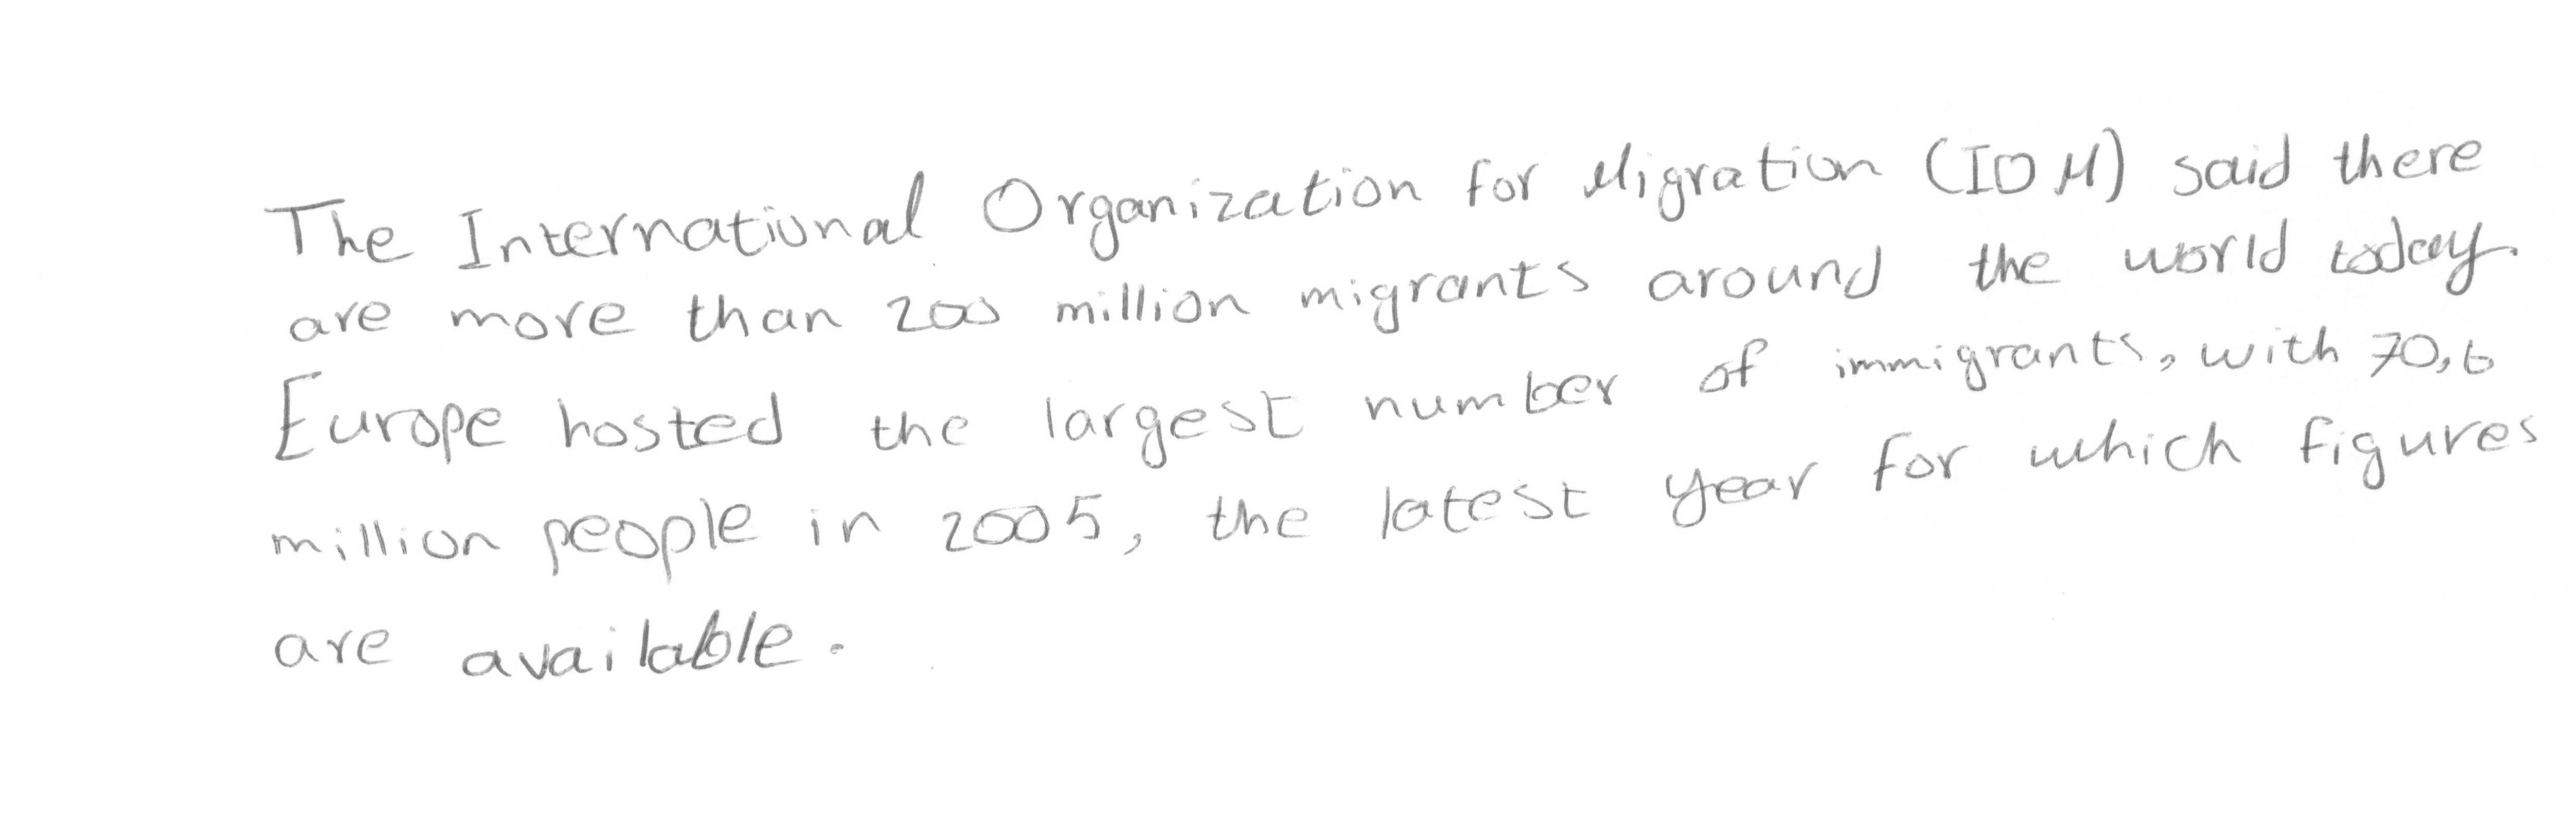 The International Organization for Migration (IOM) said there
are more than 200 million migrants around the world today.
Europe hosted the largest number of immigrants, with 70,6
million people in 2005, the latest year for which figures
are available.